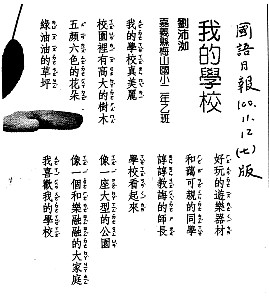 國語日報
100.11.12(七)版
我的學校
劉沛洳
嘉義縣梅山國小二年乙班
我的學校真美麗
校園裡有高大的樹木
五顏六色的花朵
綠油油的草坪
好玩的遊樂器材
和藹可親的同學
諄諄教誨的師長
學校看起來
像一座大型的公園
像一個和樂融融的大家庭
我喜歡我的學校